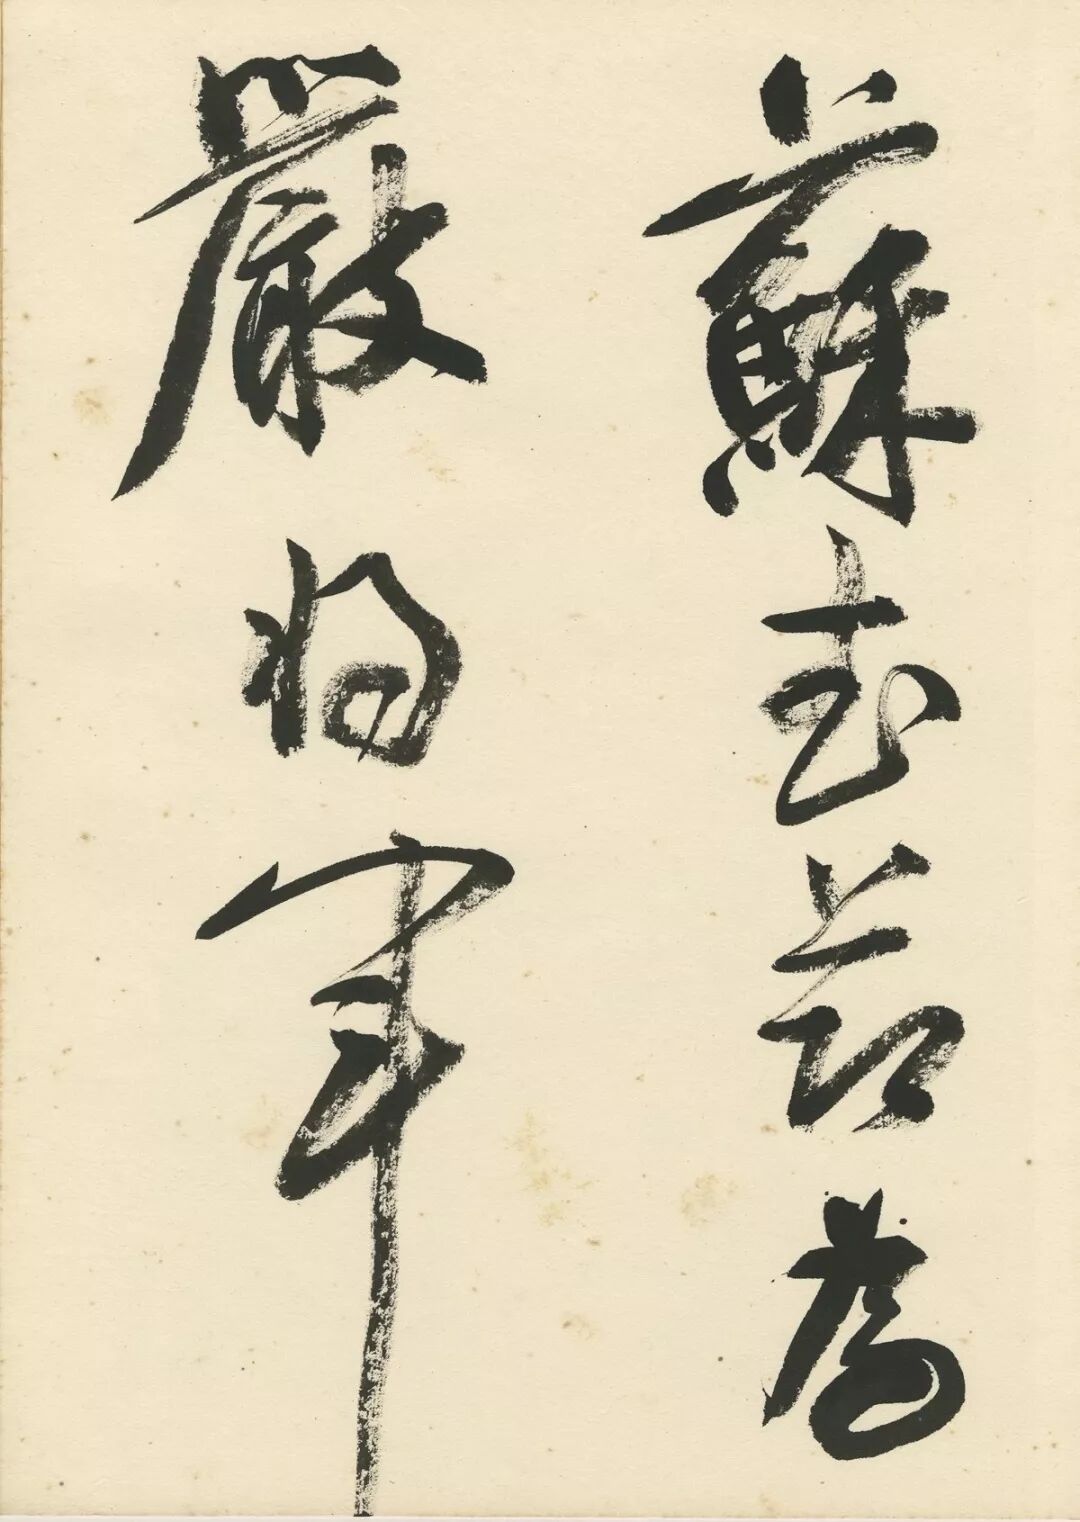 蘇武節為
嚴將軍